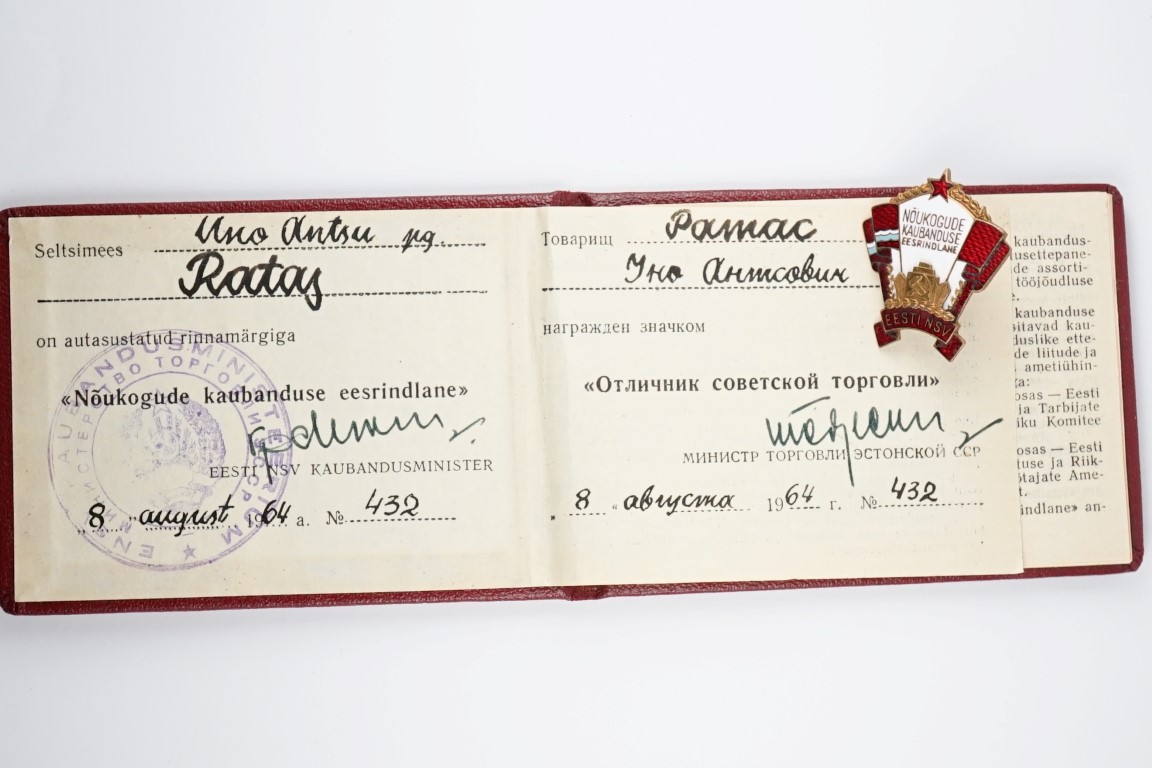 Seltsimees Uno Antsu pg.
Ratas
on autasustatud rinnamärgiga
«Nõukogude kaubanduse eesrindlane»
EESTI NSV KAUBANDUSMINISTER
„8 „ august 1964 a. № 432
KAUBANDUSMINISTEERIUM ★ ENSV
МИНИСТЕРСТВО ТОРГОВЛИ ЭССР
Товарищ Ратас
Уно Антсович
награжден значком
«Отличник советской торговли»
МИНИСТР ТОРГОВЛИ ЭСТОНСКОЙ ССР
„ 8 „ августа 1964 г. № 432
NÕUKOGUDE
KAUBANDUSE
EESRINDLANE
EESTI NSV
kaubandus-
lusettepane-
de assorti-
tööjõudluse
e.
kaubanduse
sitavad kau-
duslike ette-
de liitude ja
ametiühin-
ga:
osas — Eesti
ja Tarbijate
iku Komitee
osas — Eesti
tuse ja Riik-
tajate Ame-
t.
indlane» an-